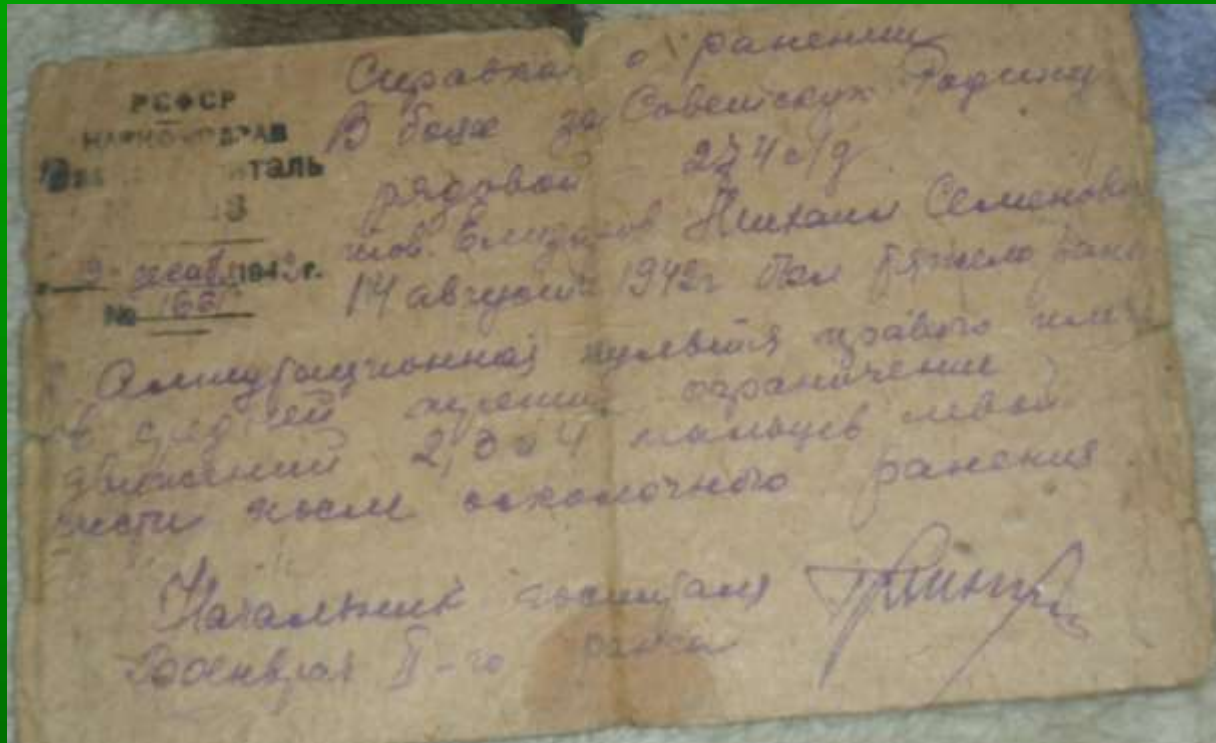 РСФСР
НАРКОМЗДРАВ
Справка о ранении
В боях за Советскую Родину
рядовой 274 с/д
тов. Михаил Семенови
9 декабр 1942 г.
14 августа 1942г был тяжело ране
№ 1661
Ампутационная культя правого плеча
в средней трети, ограничение
движений 2, 3 и 4 пальцев левой
кисти после осколочного ранения
Начальник госпиталя
Военврач II-го ранга